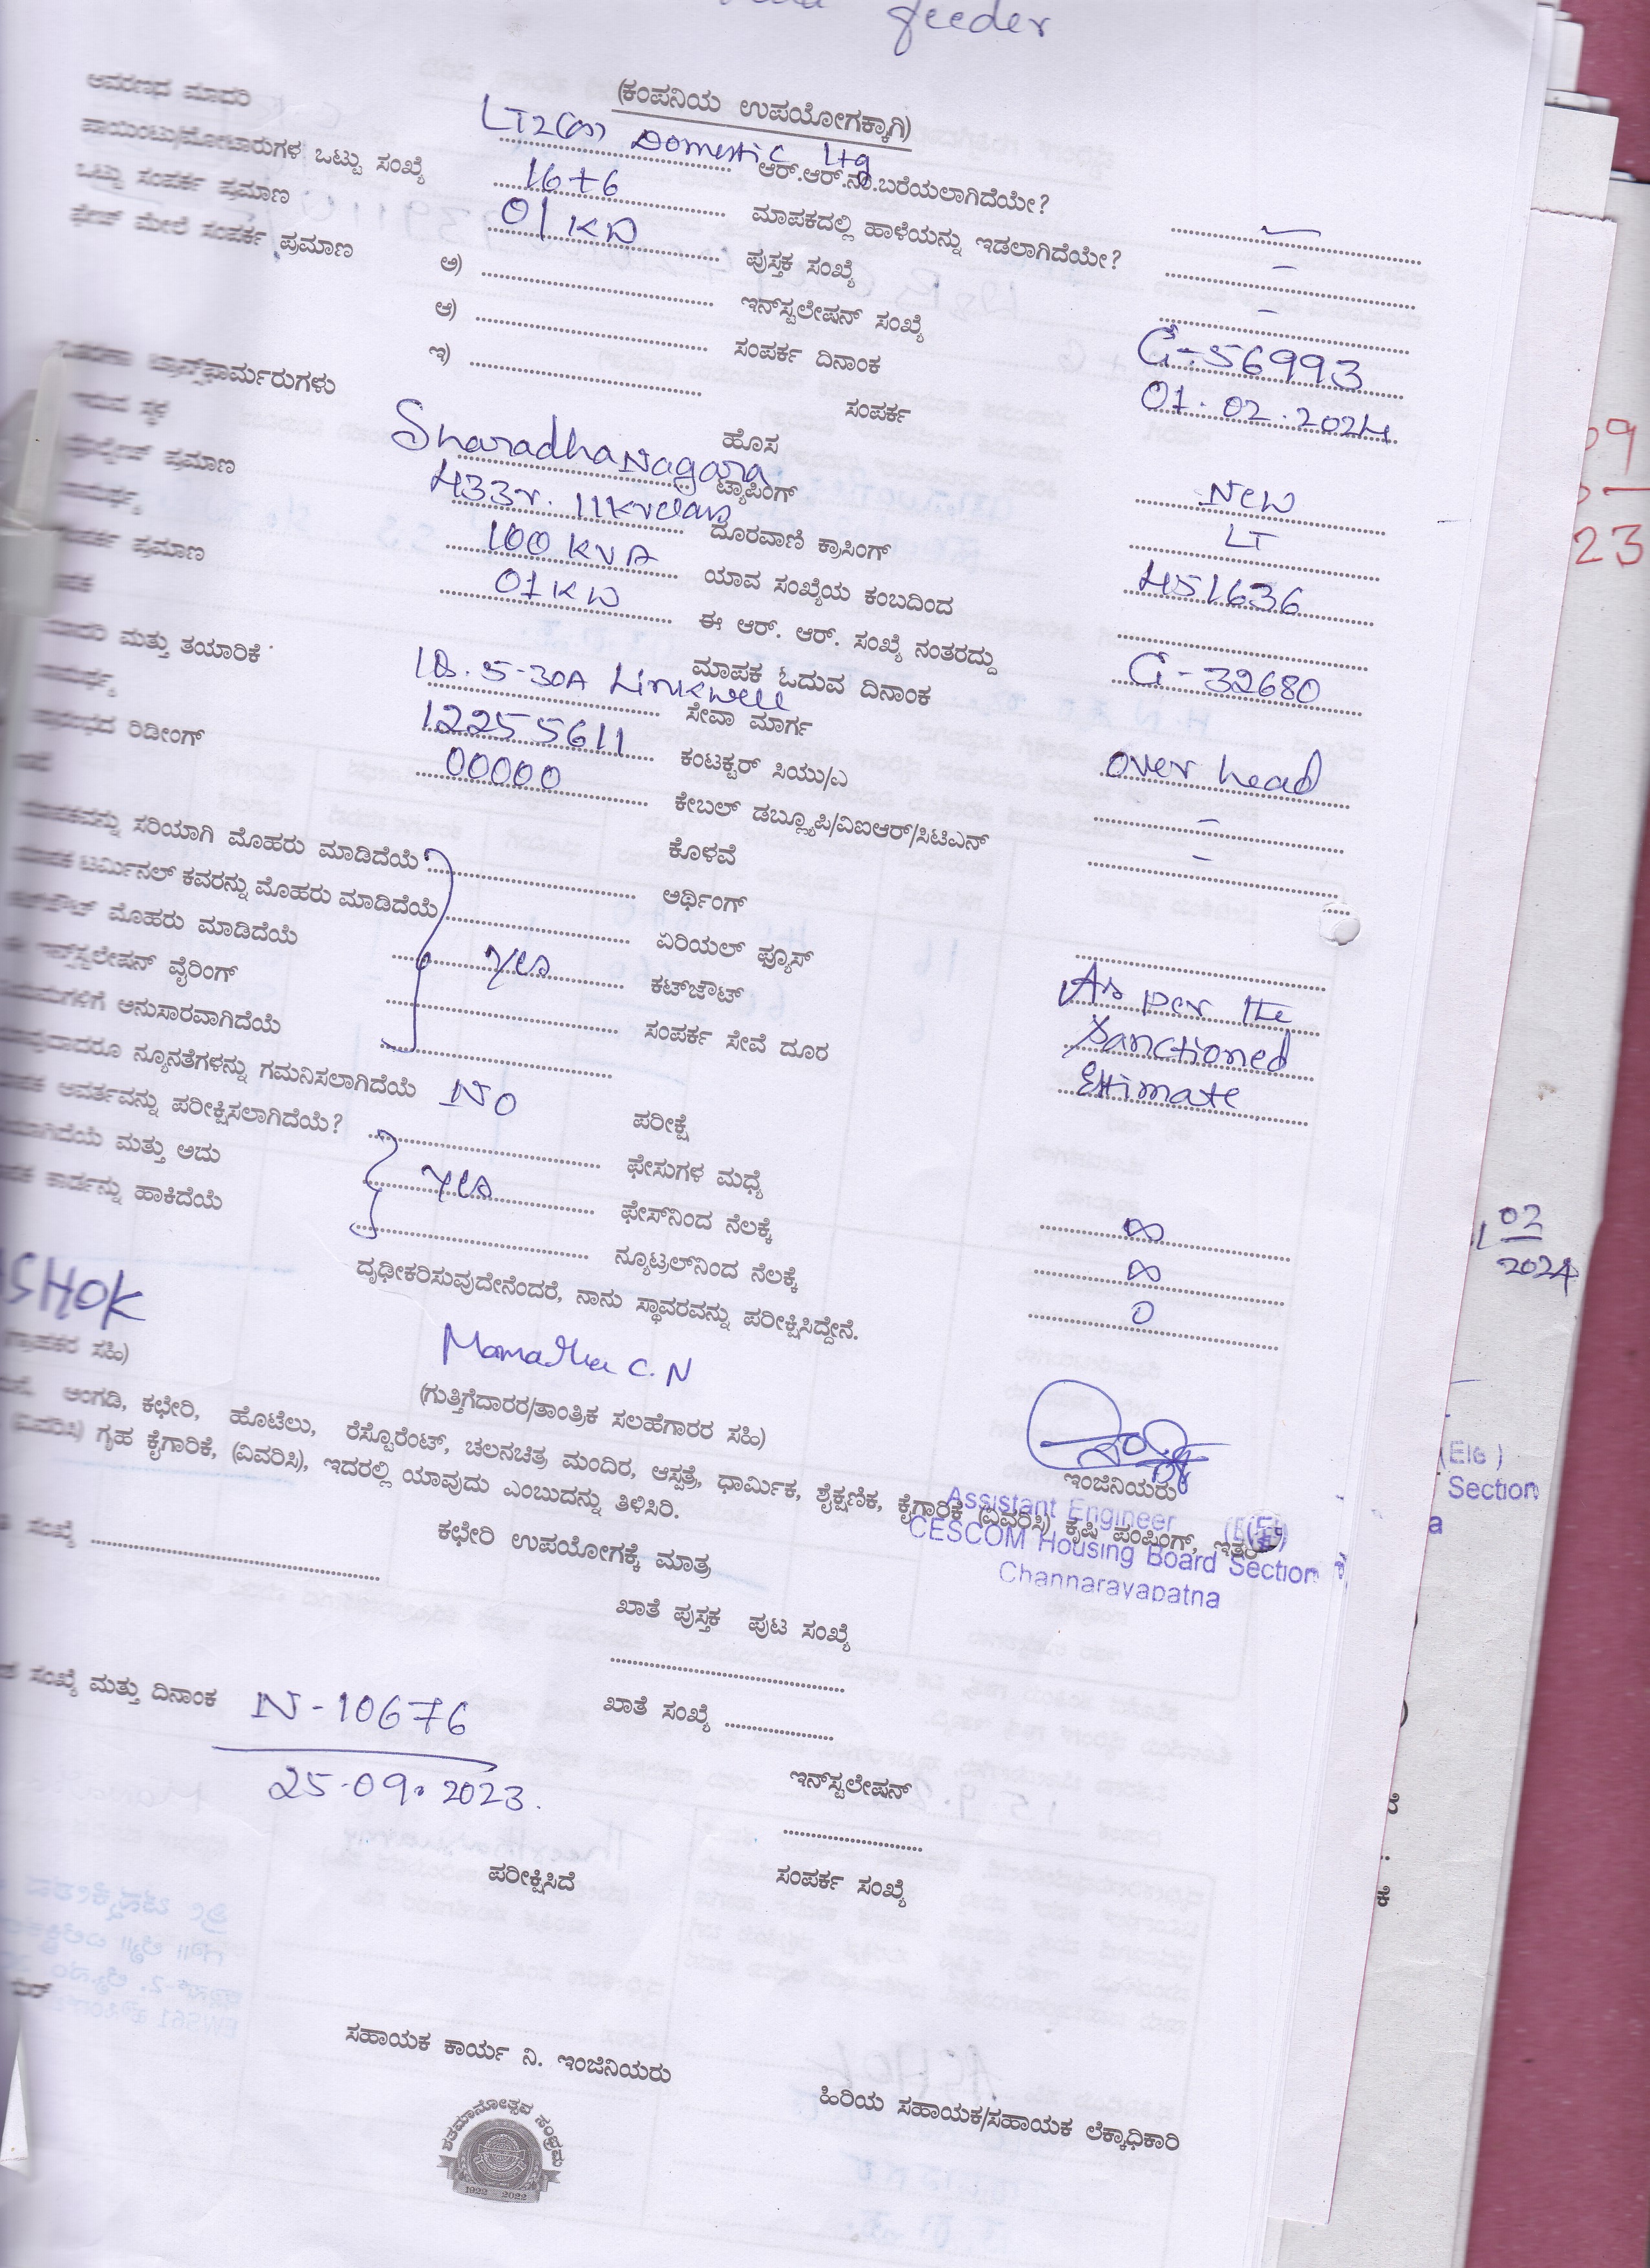 feeder
(ಕಂಪನಿಯ ಉಪಯೋಗಕ್ಕಾಗಿ)
ಆವರಣದ ಮಾದರಿ LT2(a) Domestic ltg ಆರ್.ಆರ್.ನಂ.ಬರೆಯಲಾಗಿದೆಯೇ? -
ಪಾಯಿಂಟು/ಮೋಟಾರುಗಳ ಒಟ್ಟು ಸಂಖ್ಯೆ 16+6 ಮಾಪಕದಲ್ಲಿ ಹಾಳೆಯನ್ನು ಇಡಲಾಗಿದೆಯೇ? -
ಒಟ್ಟು ಸಂಪರ್ಕ ಪ್ರಮಾಣ 01 KW ಪುಸ್ತಕ ಸಂಖ್ಯೆ -
ಫೇಜ್ ಮೇಲೆ ಸಂಪರ್ಕ ಪ್ರಮಾಣ ಅ) ಇನ್‌ಸ್ಟಲೇಷನ್ ಸಂಖ್ಯೆ G-56993
ಆ) ಸಂಪರ್ಕ ದಿನಾಂಕ 01.02.2024
ಇ) ಸಂಪರ್ಕ
ಟ್ರಾನ್ಸ್‌ಫಾರ್ಮರುಗಳು ಹೊಸ New
ಇರುವ ಸ್ಥಳ SharadhaNagara ಟ್ಯಾಪಿಂಗ್ LT
ಪ್ರಮಾಣ 433v. 11Kvclass ದೂರವಾಣಿ ಕ್ರಾಸಿಂಗ್ 451636
100 KVA ಯಾವ ಸಂಖ್ಯೆಯ ಕಂಬದಿಂದ
ಸಂಪರ್ಕ ಪ್ರಮಾಣ 01KW ಈ ಆರ್. ಆರ್. ಸಂಖ್ಯೆ ನಂತರದ್ದು G-32680
ಮಾಪಕ ಓದುವ ದಿನಾಂಕ
ಮಾದರಿ ಮತ್ತು ತಯಾರಿಕೆ 5-30A Linkwell ಸೇವಾ ಮಾರ್ಗ over head
12255611 ಕಂಟಕ್ಟರ್ ಸಿಯು/ಎ -
ಪ್ರಾರಂಭದ ರಿಡೀಂಗ್ 00000 ಕೇಬಲ್ ಡಬ್ಲ್ಯೂಪಿ/ವಿಐಆರ್/ಸಿಟಿಎನ್ -
ಕೊಳವೆ
ಮಾಪಕವನ್ನು ಸರಿಯಾಗಿ ಮೊಹರು ಮಾಡಿದೆಯೆ ಅರ್ಥಿಂಗ್
ಮಾಪಕ ಟರ್ಮಿನಲ್ ಕವರನ್ನು ಮೊಹರು ಮಾಡಿದೆಯೆ ಏರಿಯಲ್ ಫ್ಯೂಸ್
ಕಟ್‌ಔಟ್ ಮೊಹರು ಮಾಡಿದೆಯೆ yes ಕಟ್‌ಔಟ್ As per the
ಈ ಇನ್‌ಸ್ಟಲೇಷನ್ ವೈರಿಂಗ್ ಸಂಪರ್ಕ ಸೇವೆ ದೂರ Sanctioned
ನಿಯಮಗಳಿಗೆ ಅನುಸಾರವಾಗಿದೆಯೆ Estimate
ಯಾವುದಾದರೂ ನ್ಯೂನತೆಗಳನ್ನು ಗಮನಿಸಲಾಗಿದೆಯೆ NO ಪರೀಕ್ಷೆ
ಮಾಪಕ ಆವರ್ತವನ್ನು ಪರೀಕ್ಷಿಸಲಾಗಿದೆಯೆ? ಫೇಸುಗಳ ಮಧ್ಯೆ ∞
ಸರಿಯಾಗಿದೆಯೆ ಮತ್ತು ಅದು yes ಫೇಸ್‌ನಿಂದ ನೆಲಕ್ಕೆ ∞
ಮಾಪಕ ಕಾರ್ಡನ್ನು ಹಾಕಿದೆಯೆ ನ್ಯೂಟ್ರಲ್‌ನಿಂದ ನೆಲಕ್ಕೆ 0
ದೃಢೀಕರಿಸುವುದೇನೆಂದರೆ, ನಾನು ಸ್ಥಾವರವನ್ನು ಪರೀಕ್ಷಿಸಿದ್ದೇನೆ.
ASHOK
Mamatha C.N
(ಗ್ರಾಹಕರ ಸಹಿ) (ಗುತ್ತಿಗೆದಾರರ/ತಾಂತ್ರಿಕ ಸಲಹೆಗಾರರ ಸಹಿ) ಇಂಜಿನಿಯರು
Assistant Engineer
CESCOM Housing Board Section
Channarayapatna
ಮನೆ, ಅಂಗಡಿ, ಕಛೇರಿ, ಹೊಟೆಲು, ರೆಸ್ಟೊರೆಂಟ್, ಚಲನಚಿತ್ರ ಮಂದಿರ, ಆಸ್ಪತ್ರೆ, ಧಾರ್ಮಿಕ, ಶೈಕ್ಷಣಿಕ, ಕೈಗಾರಿಕೆ (ವಿವರಿಸಿ) ಕೃಷಿ ಪಂಪಿಂಗ್, ಇತರೆ
(ವಿವರಿಸಿ) ಗೃಹ ಕೈಗಾರಿಕೆ, (ವಿವರಿಸಿ), ಇದರಲ್ಲಿ ಯಾವುದು ಎಂಬುದನ್ನು ತಿಳಿಸಿರಿ.
ಕಛೇರಿ ಉಪಯೋಗಕ್ಕೆ ಮಾತ್ರ
ಸಂಖ್ಯೆ ಖಾತೆ ಪುಸ್ತಕ ಪುಟ ಸಂಖ್ಯೆ
ಸಂಖ್ಯೆ ಮತ್ತು ದಿನಾಂಕ N-10676 ಖಾತೆ ಸಂಖ್ಯೆ
25-09.2023. ಇನ್‌ಸ್ಟಲೇಷನ್
ಪರೀಕ್ಷಿಸಿದೆ ಸಂಪರ್ಕ ಸಂಖ್ಯೆ
ಸಹಾಯಕ ಕಾರ್ಯ ನಿ. ಇಂಜಿನಿಯರು ಹಿರಿಯ ಸಹಾಯಕ/ಸಹಾಯಕ ಲೆಕ್ಕಾಧಿಕಾರಿ
ಶತಮಾನೋತ್ಸವ ಸಂಭ್ರಮ
1922 - 2022
09
23
02
2024
(Ele)
Section